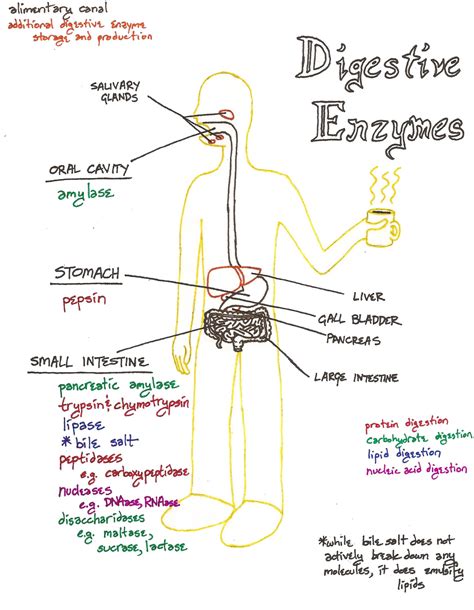 alimentary canal
additional digestive enzyme
storage and production
Digestive
Enzymes
SALIVARY
GLANDS
ORAL CAVITY
amylase
STOMACH
pepsin
LIVER
GALL BLADDER
PANCREAS
SMALL INTESTINE
LARGE INTESTINE
pancreatic amylase
trypsin & chymotrypsin
lipase
*bile salt
peptidases
e.g. carboxypeptidase
nucleases
e.g. DNAase, RNAase
disaccharidases
eg. maltase,
sucrase, lactase
protein digestion
carbohydrate digestion
lipid digestion
nucleic acid digestion
*while bile salt does not
actively break down any
molecules, it does emulsify
lipids